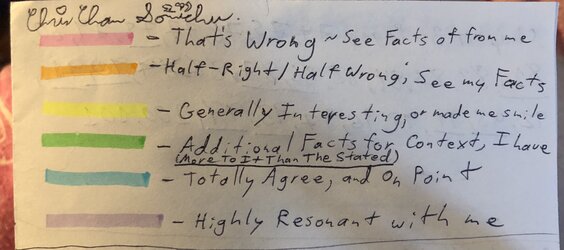 Chris Chan Sonichu.
- That's Wrong ~ See Facts of from me
- Half-Right/Half Wrong; See my Facts
- Generally Interesting, or made me smile
- Additional Facts for Context, I have
(More To It Than The Stated)
- Totally Agree, and On Point
- Highly Resonant with me